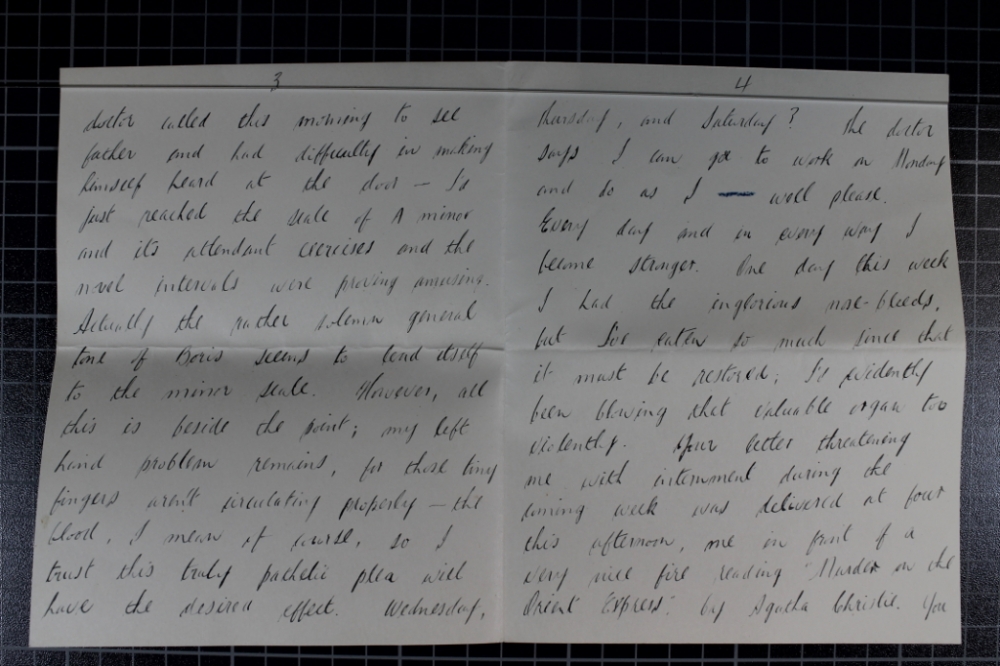 3
doctor called this morning to see
father and had difficulty in making
himself heard at the door — I'd
just reached the scale of A minor
and its attendant exercises and the
novel intervals were proving amusing.
Actually the rather solemn general
tone of Boris seems to lend itself
to the minor scale. However, all
this is beside the point; my left
hand problem remains, for those tiny
fingers aren't circulating properly — the
blood, I mean of course, so I
trust this truly pathetic plea will
have the desired effect. Wednesday,
4
Thursday, and Saturday? The doctor
says I can go to work on Monday
and do as I well please.
Every day and in every way I
become stronger. One day this week
I had the inglorious nose-bleeds,
but I've eaten so much since that
it must be restored; I'd evidently
been blowing that valuable organ too
violently. Your letter threatening
me with internment during the
coming week was delivered at four
this afternoon, me in front of a
very nice fire reading "Murder on the
Orient Express" by Agatha Christie. You